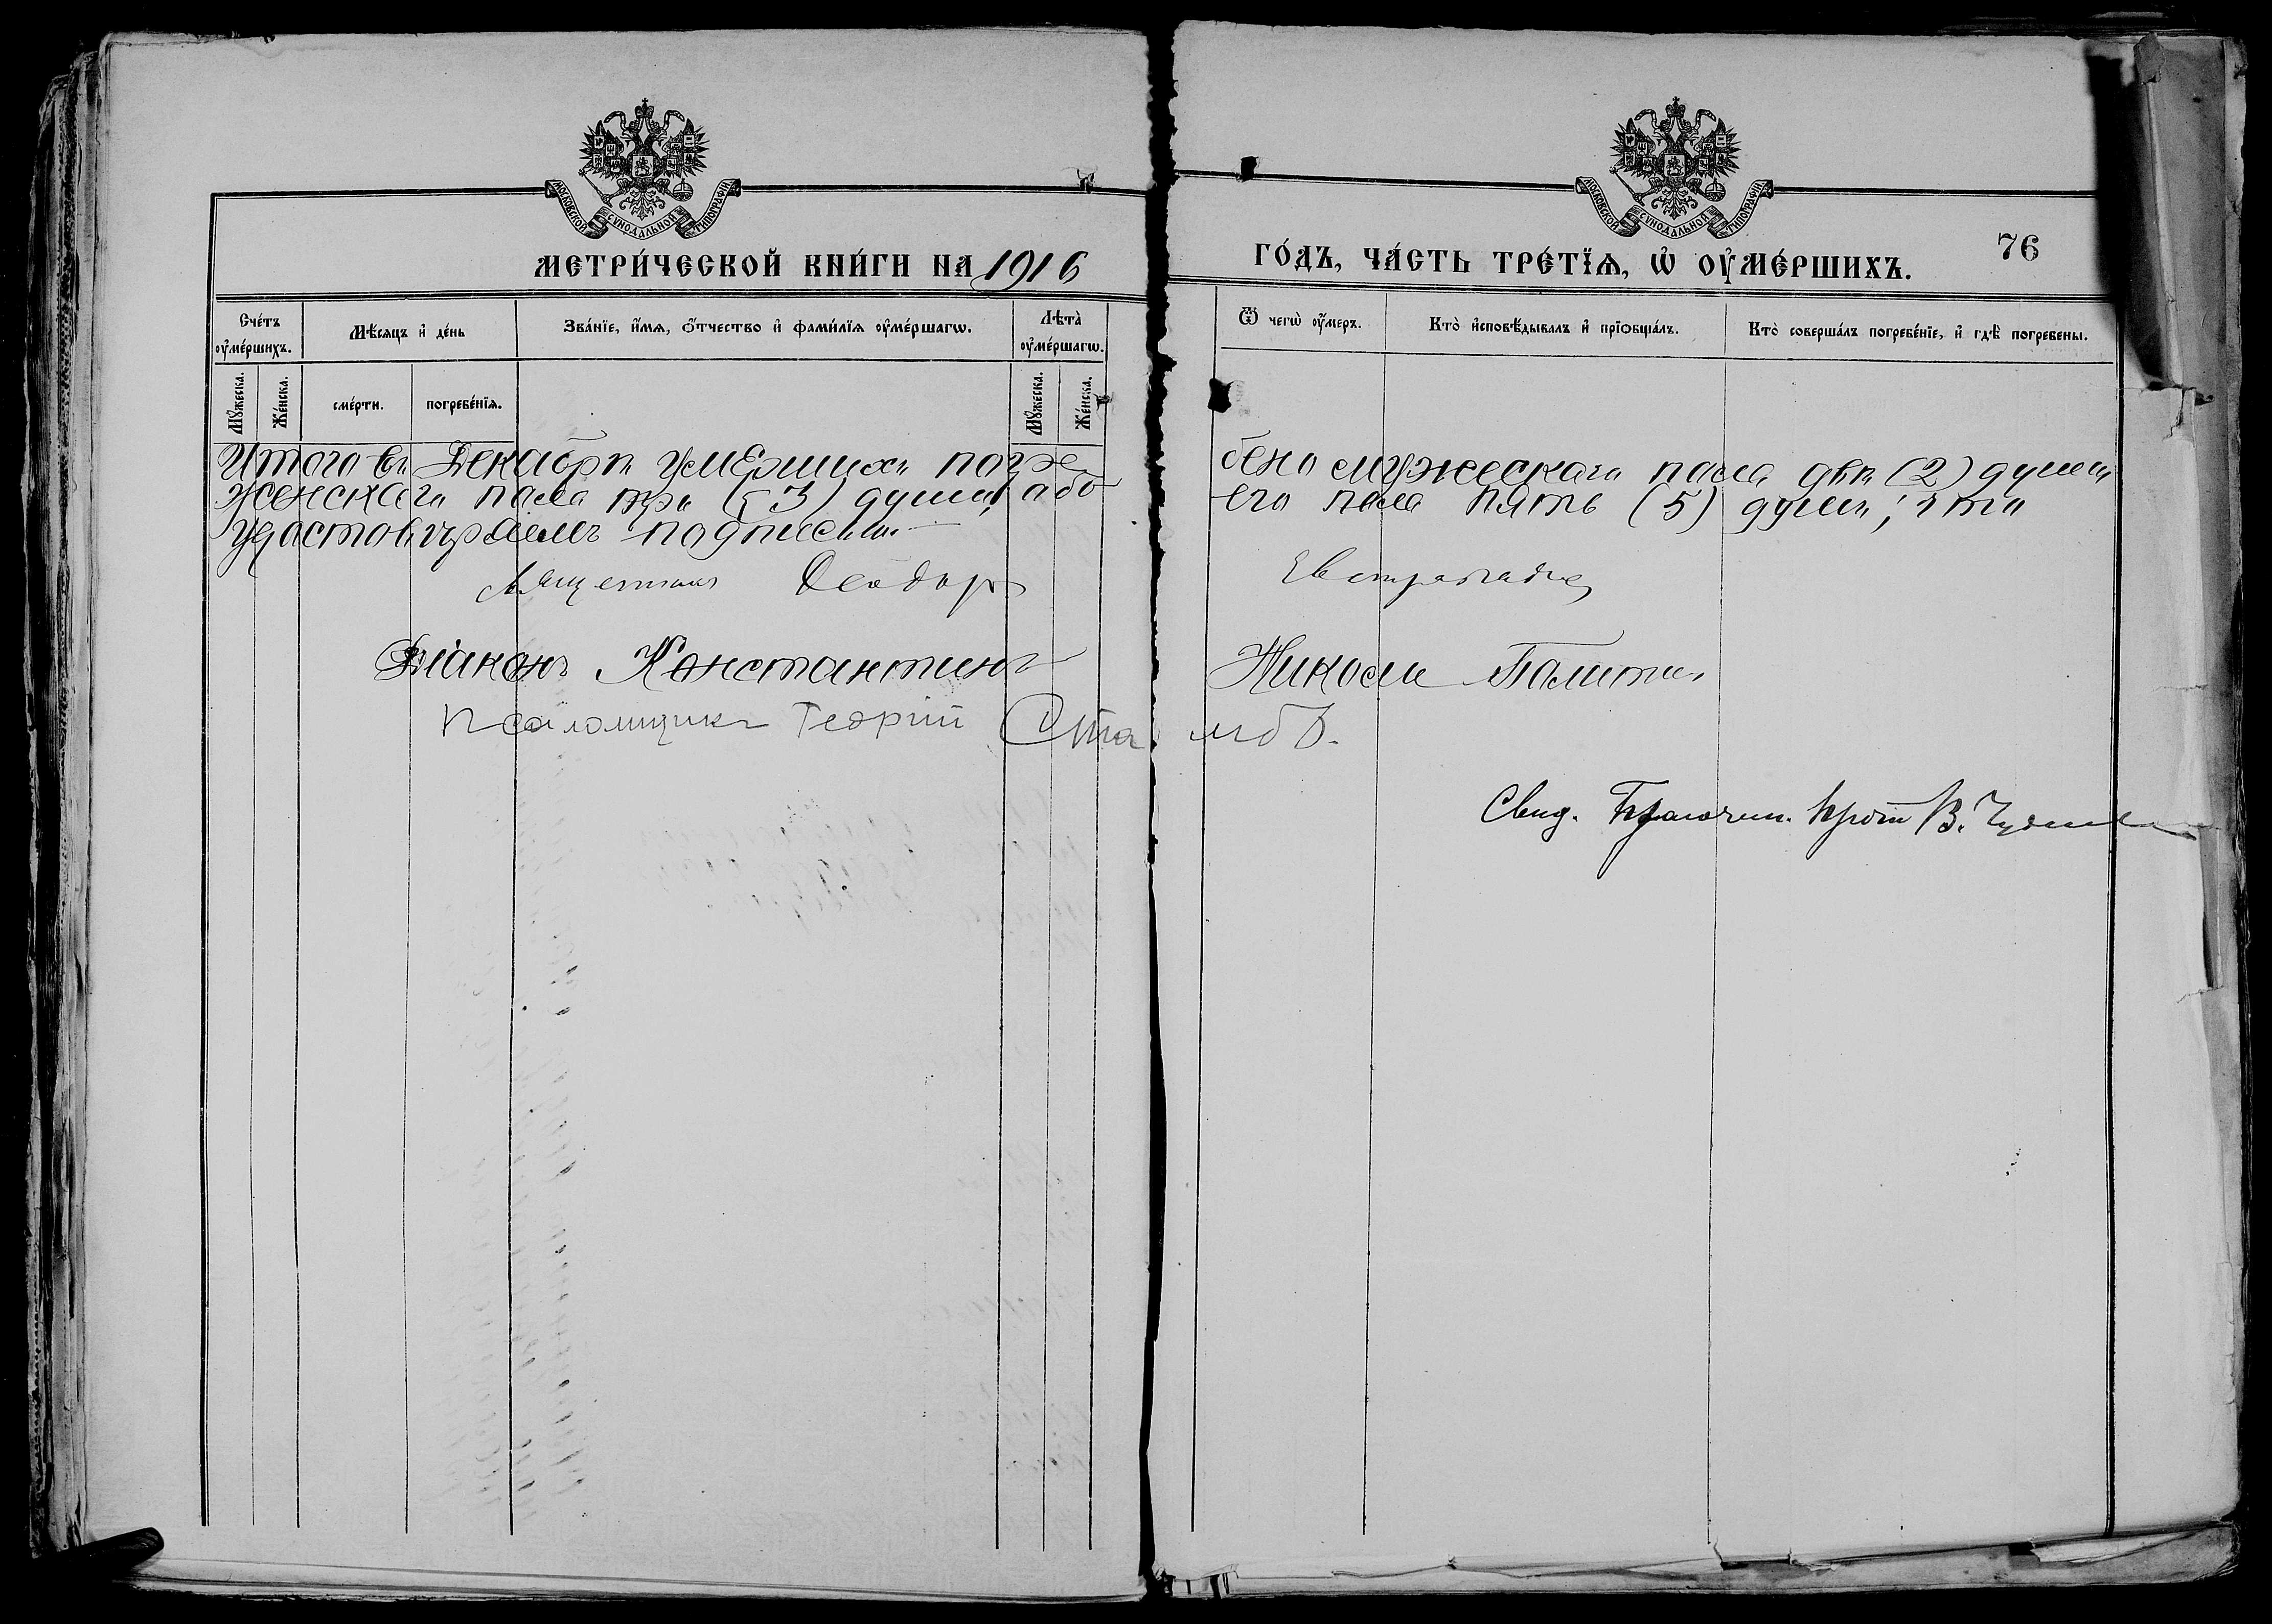 МОСКОВСКОЙ СѴНОДАЛЬНОЙ ТИПОГРАФІИ
МОСКОВСКОЙ СѴНОДАЛЬНОЙ ТИПОГРАФІИ
МЕТРИ́ЧЕСКОЙ КНИ́ГИ НА 1916 ГО́ДЪ, ЧА́СТЬ ТРЕ́ТЇѦ, Ѡ҆ ОУ҆МЕ́РШИХЪ.
76
Сче́тъ оу҆ме́ршихъ.
Мѣ́сяцъ и҆ де́нь
Зва́нїе, и҆́мя, ѻ҆́тчество и҆ фами́лїя оу҆ме́ршагѡ.
Лѣта̀ оу҆ме́ршагѡ.
Ѿ чегѡ̀ оу҆́меръ.
Кто̀ и҆сповѣ́дывалъ и҆ прїобща́лъ.
Кто̀ соверша́лъ погребе́нїе, и҆ гдѣ̀ погребены.
Мꙋ́жеска.
Же́нска.
сме́рти.
погребе́нїя.
Мꙋ́жеска.
Же́нска.
Итого въ Декабрѣ умершихъ погребено мужескаго пола двѣ (2) души
женскаго пола три (3) души, обоего пола пять (5) душъ; что
удостовѣряемъ подписью
Священникъ Ѳеодоръ
Діаконъ Константинъ
Псаломщикъ Георгій
Свид. Благочин. Прот. В.